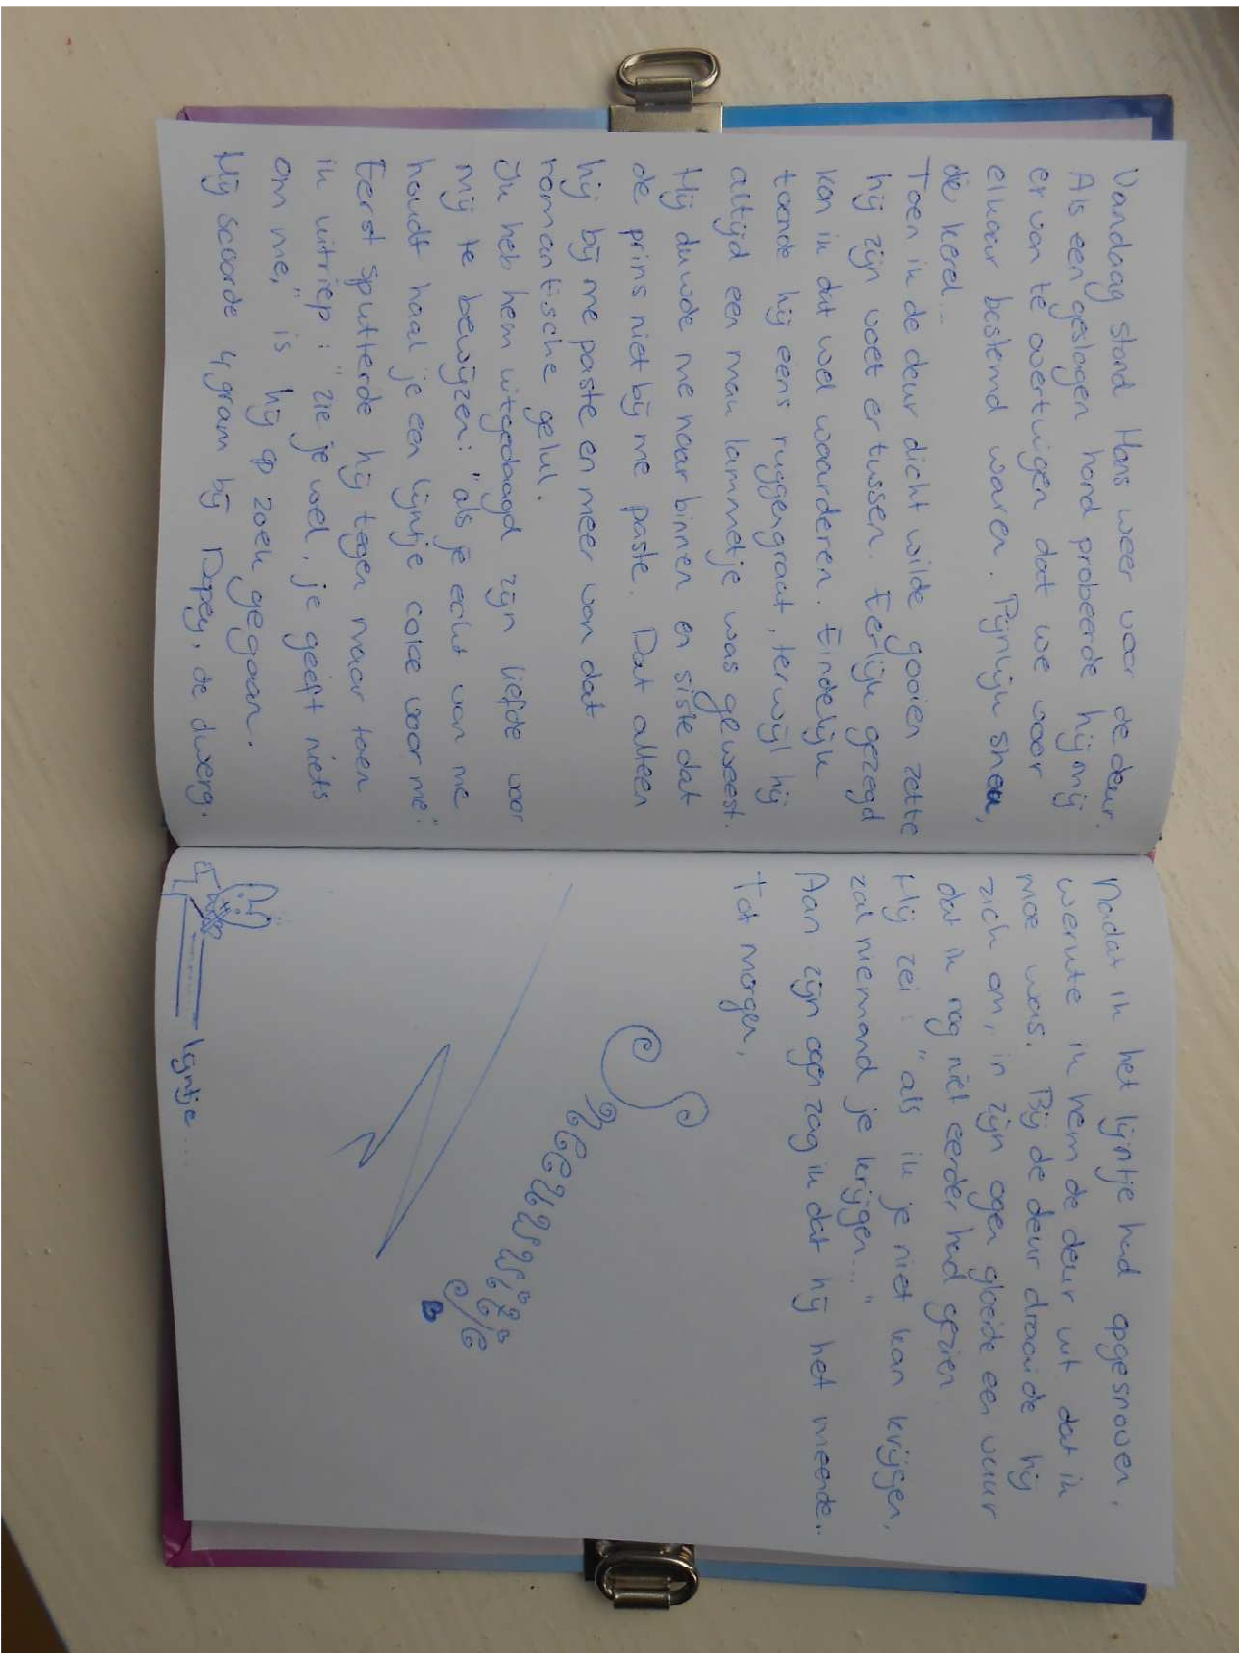 Vandaag stond Hans weer voor de deur.
Als een geslagen hond probeerde hij mij
ervan te overtuigen dat we voor
elkaar bestemd waren. Pijnlijk
de kerel...
Toen ik de deur dicht wilde gooien zette
hij zijn voet ertussen. Eerlijk gezegd
kon ik dat wel waarderen. Eindelijk
toonde hij eens ruggengraat, terwijl hij
altijd een mak lammetje was geweest.
Hij duwde me naar binnen en siste dat
de prins niet bij me paste. Dat alleen
hij bij me paste en meer van dat
romantische gelul.
Ik heb hem uitgedaagd zijn liefde voor
mij te bewijzen: "als je echt van me
houdt haal je een lijntje coke voor me."
Eerst sputterde hij tegen maar toen
ik uitriep: "zie je wel, je geeft niets
om me," is hij op zoek gegaan.
Hij scoorde 4 gram bij Dopey, de dwerg.
Nadat ik het lijntje had opgesnoven,
werkte ik hem de deur uit dat ik
moe was. Bij de deur draaide hij
zich om, in zijn ogen gloeide een vuur
dat ik nog niet eerder had gezien.
Hij zei: "als ik je niet kan krijgen,
zal niemand je krijgen..."
Aan zijn ogen zag ik dat hij het meende..
Tot morgen,
lijntje....